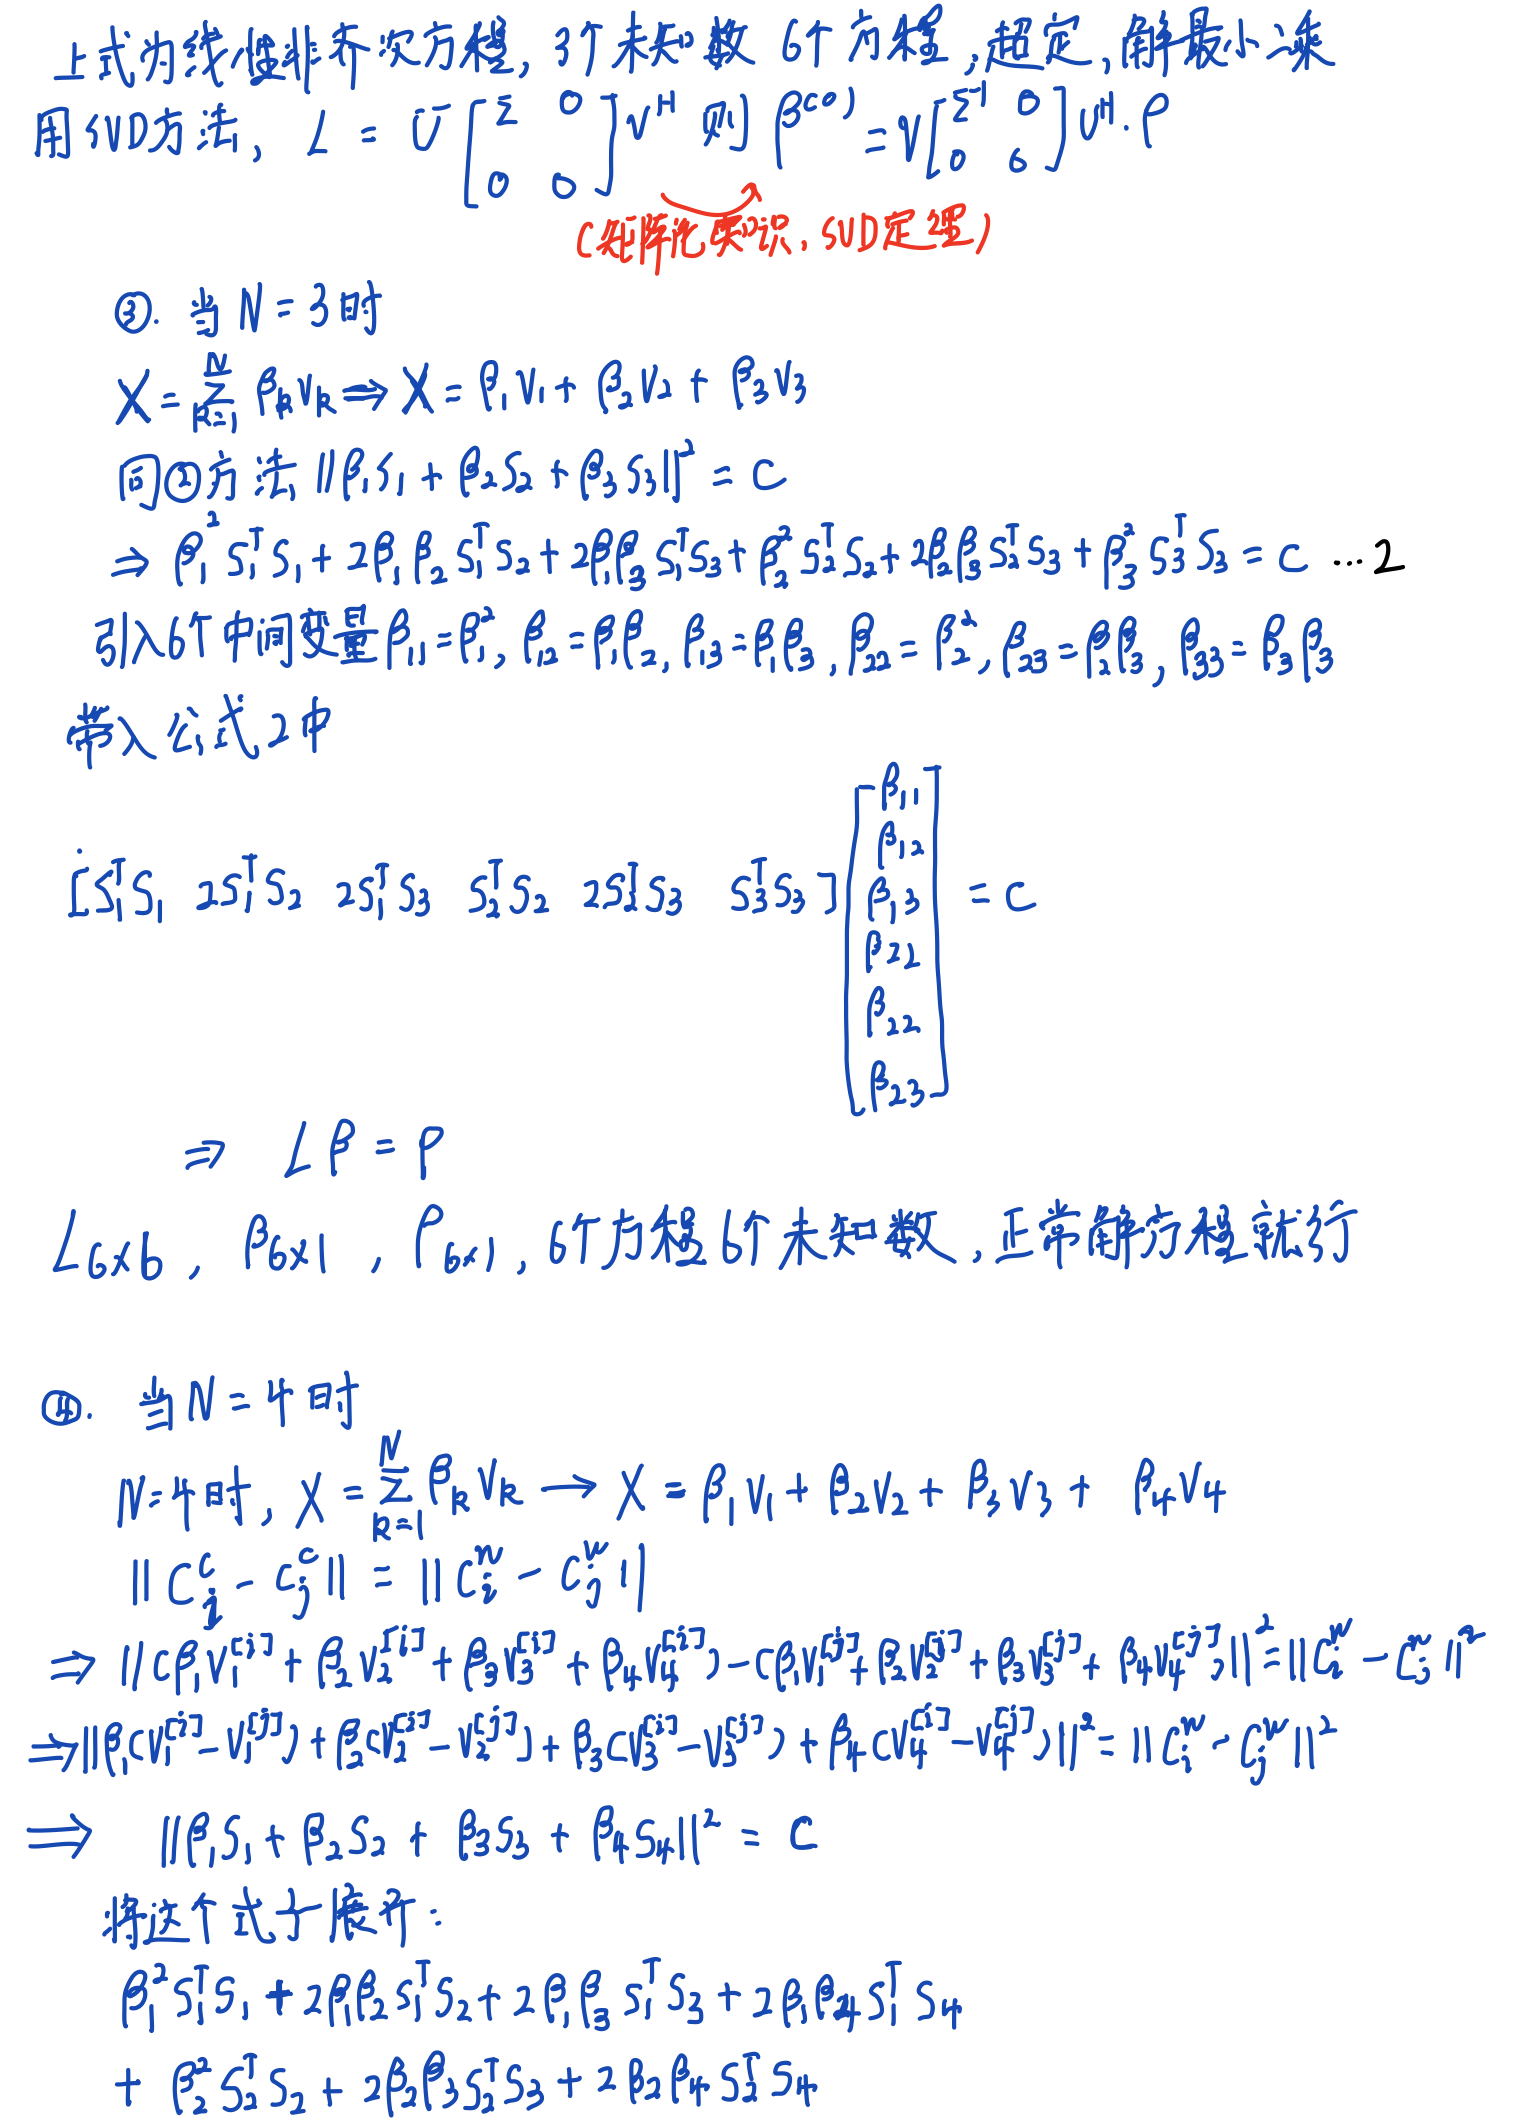 上式为线性非齐次方程, 3个未知数 6个方程, 超定, 解最小二乘
用SVD方法, L = U [Σ 0; 0 0] V^H 则 β^(0) = V [Σ^-1 0; 0 0] U^H · ρ
(矩阵论知识, SVD定理)
③. 当 N = 3 时
X = Σ_{k=1}^{N} β_k v_k ⇒ X = β_1 v_1 + β_2 v_2 + β_3 v_3
同②方法 ||β_1 S_1 + β_2 S_2 + β_3 S_3||^2 = C
⇒ β_1^2 S_1^T S_1 + 2β_1 β_2 S_1^T S_2 + 2β_1 β_3 S_1^T S_3 + β_2^2 S_2^T S_2 + 2β_2 β_3 S_2^T S_3 + β_3^2 S_3^T S_3 = C ...2
引入6个中间变量 β_11 = β_1^2, β_12 = β_1 β_2, β_13 = β_1 β_3, β_22 = β_2^2, β_23 = β_2 β_3, β_33 = β_3 β_3
带入公式2中
[S_1^T S_1 2S_1^T S_2 2S_1^T S_3 S_2^T S_2 2S_2^T S_3 S_3^T S_3] [β_11 β_12 β_13 β_22 β_22 β_23] = C
⇒ L β = ρ
L_6×6 , β_6×1 , ρ_6×1, 6个方程 6个未知数, 正常解方程就行
④. 当 N = 4 时
N=4时, X = Σ_{k=1}^{N} β_k v_k → X = β_1 v_1 + β_2 v_2 + β_3 v_3 + β_4 v_4
||C_i^c - C_j^c|| = ||C_i^w - C_j^w||
⇒ ||(β_1 v_1^[i] + β_2 v_2^[i] + β_3 v_3^[i] + β_4 v_4^[i]) - (β_1 v_1^[j] + β_2 v_2^[j] + β_3 v_3^[j] + β_4 v_4^[j])||^2 = ||C_i^w - C_j^w||^2
⇒ ||β_1(v_1^[i] - v_1^[j]) + β_2(v_2^[i] - v_2^[j]) + β_3(v_3^[i] - v_3^[j]) + β_4(v_4^[i] - v_4^[j])||^2 = ||C_i^w - C_j^w||^2
⇒ ||β_1 S_1 + β_2 S_2 + β_3 S_3 + β_4 S_4||^2 = C
将这个式子展开:
β_1^2 S_1^T S_1 + 2β_1 β_2 S_1^T S_2 + 2β_1 β_3 S_1^T S_3 + 2β_1 β_4 S_1^T S_4
+ β_2^2 S_2^T S_2 + 2β_2 β_3 S_2^T S_3 + 2β_2 β_4 S_2^T S_4